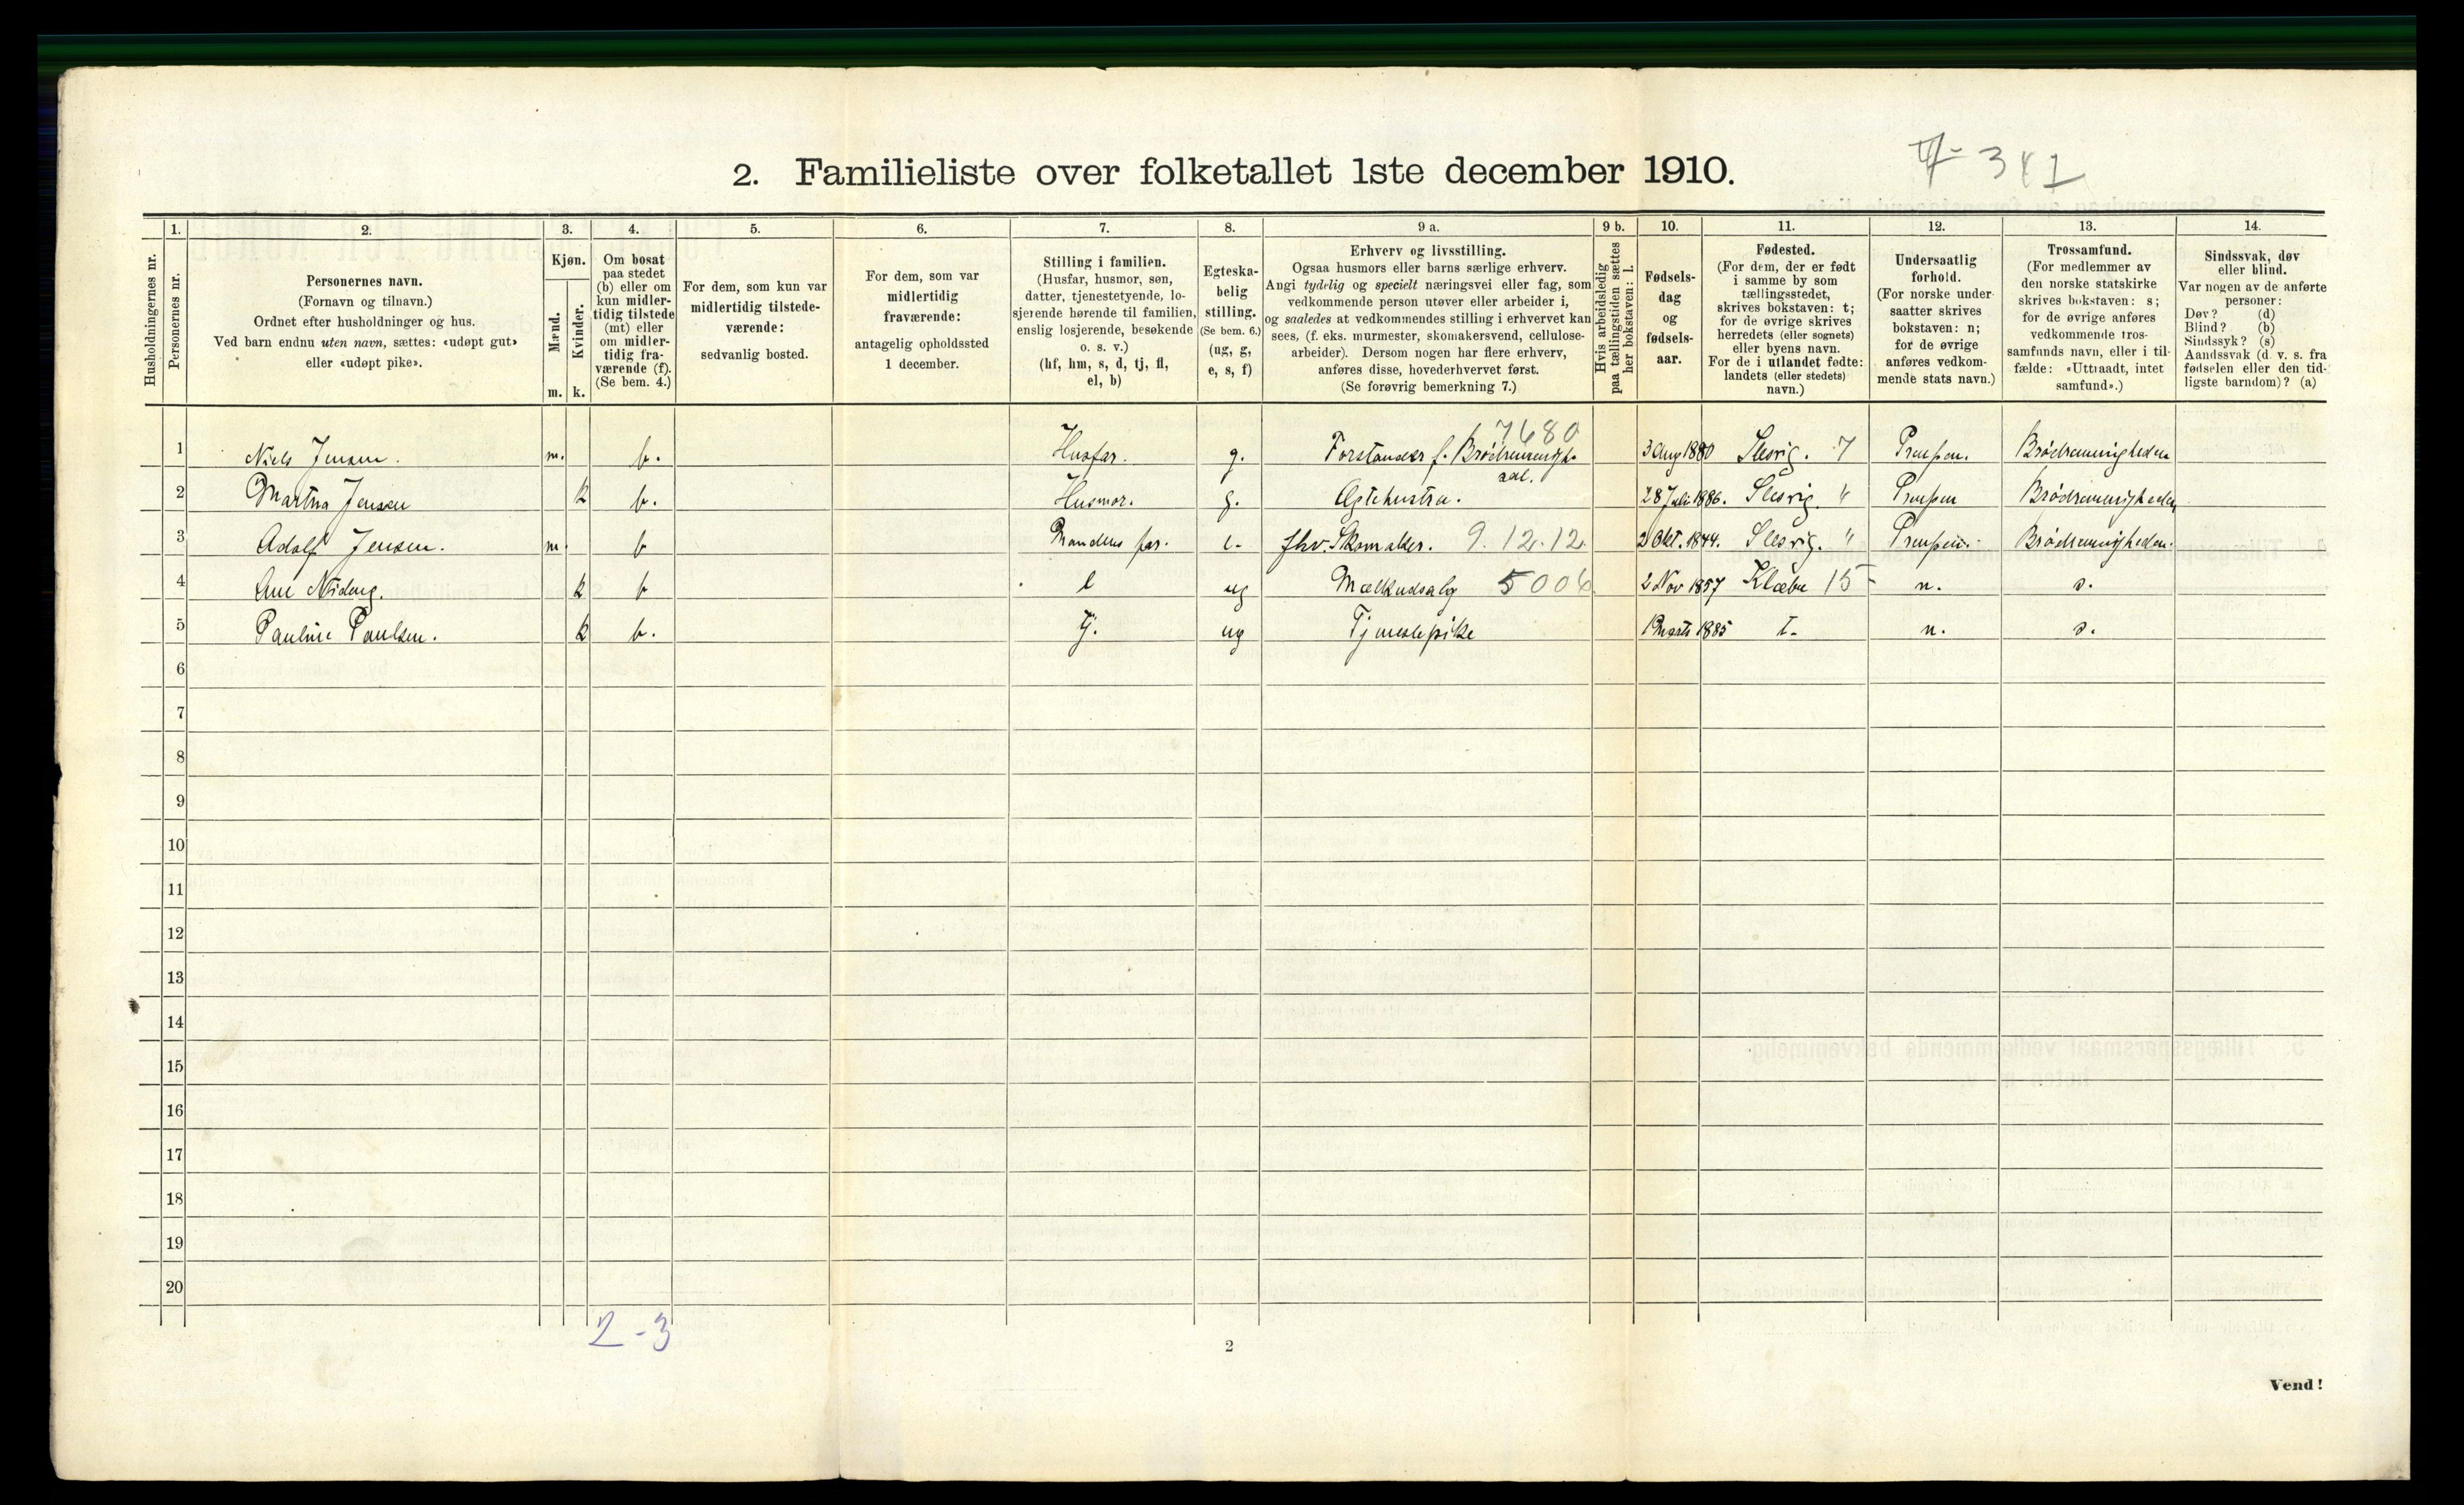 2. Familieliste over folketallet 1ste december 1910.
341
Husholdningernes nr.
1.
Personernes nr.
2.
Personernes navn.
(Fornavn og tilnavn.)
Ordnet efter husholdninger og hus.
Ved barn endnu uten navn, sættes: «udøpt gut»
eller «udøpt pike».
3.
Kjøn.
Mænd.
Kvinder.
m. k.
4.
Om bosat
paa stedet
(b) eller om
kun midler-
tidig tilstede
(mt) eller
om midler-
tidig fra-
værende (f).
(Se bem. 4.)
5.
For dem, som kun var
midlertidig tilstede-
værende:
sedvanlig bosted.
6.
For dem, som var
midlertidig
fraværende:
antagelig opholdssted
1 december.
7.
Stilling i familien.
(Husfar, husmor, søn,
datter, tjenestetyende, lo-
sjerende hørende til familien,
enslig losjerende, besøkende
o. s. v.)
(hf, hm, s, d, tj, fl,
el, b)
8.
Egteska-
belig
stilling.
(Se bem. 6.)
(ug, g,
e, s, f)
9 a.
Erhverv og livsstilling.
Ogsaa husmors eller barns særlige erhverv.
Angi tydelig og specielt næringsvei eller fag, som
vedkommende person utøver eller arbeider i,
og saaledes at vedkommendes stilling i erhvervet kan
sees, (f. eks. murmester, skomakersvend, cellulose-
arbeider). Dersom nogen har flere erhverv,
anføres disse, hovederhvervet først.
(Se forøvrig bemerkning 7.)
9 b.
Hvis arbeidsledig
paa tællingstiden sættes
her bokstaven: l.
10.
Fødsels-
dag
og
fødsels-
aar.
11.
Fødested.
(For dem, der er født
i samme by som
tællingsstedet,
skrives bokstaven: t;
for de øvrige skrives
herredets (eller sognets)
eller byens navn.
For de i utlandet fødte:
landets (eller stedets)
navn.)
12.
Undersaatlig
forhold.
(For norske under-
saatter skrives
bokstaven: n;
for de øvrige
anføres vedkom-
mende stats navn.)
13.
Trossamfund.
(For medlemmer av
den norske statskirke
skrives bokstaven: s;
for de øvrige anføres
vedkommende tros-
samfunds navn, eller i til-
fælde: «Uttraadt, intet
samfund».)
14.
Sindssvak, døv
eller blind.
Var nogen av de anførte
personer:
Døv? (d)
Blind? (b)
Sindssyk? (s)
Aandssvak (d. v. s. fra
fødselen eller den tid-
ligste barndom)? (a)
7680
1 Niels Jensen. m. b. Husfar. g. Forstander f. Brødremenigh. 3 Aug 1880 Slesvig. 7 Preussen. Brødremenigheden
sal.
2 Martha Jensen k b. Husmor. g. Egtehustru. 28 Juli 1886. Slesvig. " Preussen Brødremenigheden
3 Adolf Jensen. m. b Mandens far. e. fhv. Skomaker. 9.12.12. 2 Okt. 1844. Slesvig. " Preussen. Brødremenigheden.
4 Ane k b l ug Melkudsalg 5006 2 Nov 1857 Klæbu 15 n. s.
5 Pauline Paulsen. k b. tj. ug Tjenestepike 1 Marts 1885 t. n. s.
6
7
8
9
10
11
12
13
14
15
16
17
18
19
20
2-3
2
Vend!